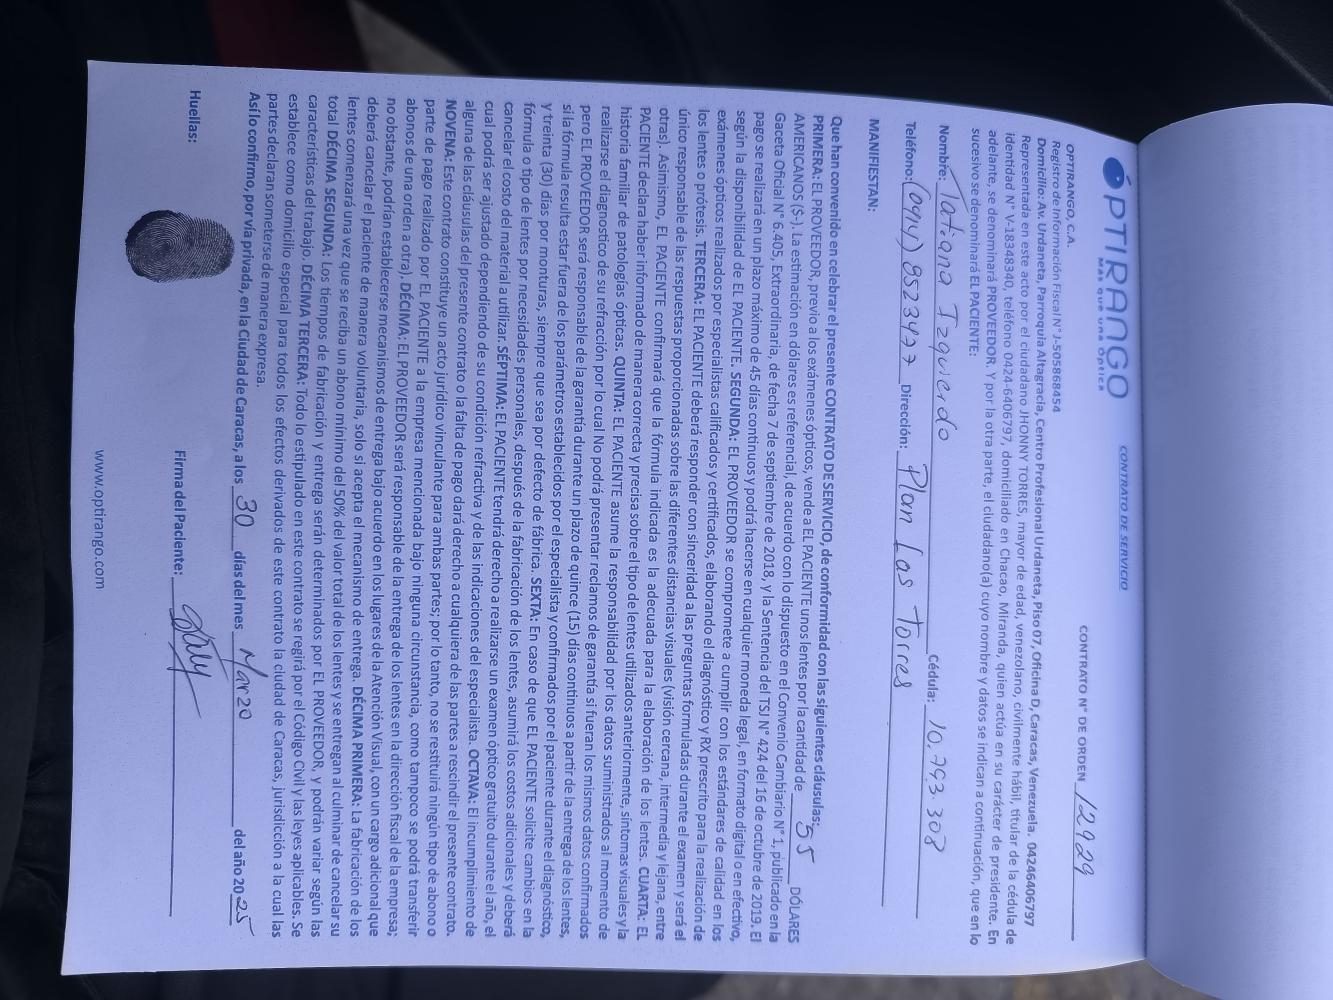 ÓPTIRANGO
Más que una óptica
CONTRATO DE SERVICIO
CONTRATO N° DE ORDEN 12929
OPTIRANGO, C.A.
Registro de Información Fiscal N° J-505868454
Domicilio: Av. Urdaneta, Parroquia Altagracia, Centro Profesional Urdaneta, Piso 07, Oficina D, Caracas, Venezuela. 04246406797
Representada en este acto por el ciudadano JHONNY TORRES, mayor de edad, venezolano, civilmente hábil, titular de la cédula de
identidad N° V-18348340, teléfono 0424-6406797, domiciliado en Chacao, Miranda, quien actúa en su carácter de presidente. En
adelante, se denominará PROVEEDOR. Y por la otra parte, el ciudadano(a) cuyo nombre y datos se indican a continuación, que en lo
sucesivo se denominará EL PACIENTE:
Nombre: Tatiana Izquierdo Cédula: 10.793.308
Teléfono: Dirección: Plan Las Torres
MANIFIESTAN:
Que han convenido en celebrar el presente CONTRATO DE SERVICIO, de conformidad con las siguientes cláusulas:
PRIMERA: EL PROVEEDOR, previo a los exámenes ópticos, vende a EL PACIENTE unos lentes por la cantidad de 55 DÓLARES
AMERICANOS ($). La estimación en dólares es referencial, de acuerdo con lo dispuesto en el Convenio Cambiario N° 1, publicado en la
Gaceta Oficial N° 6.405, Extraordinaria, de fecha 7 de septiembre de 2018, y la Sentencia del TSJ N° 424 del 16 de octubre de 2019. El
pago se realizará en un plazo máximo de 45 días continuos y podrá hacerse en cualquier moneda legal, en formato digital o en efectivo,
según la disponibilidad de EL PACIENTE. SEGUNDA: EL PROVEEDOR se compromete a cumplir con los estándares de calidad en los
exámenes ópticos realizados por especialistas calificados y certificados, elaborando el diagnóstico y RX prescrito para la realización de
los lentes o prótesis. TERCERA: EL PACIENTE deberá responder con sinceridad a las preguntas formuladas durante el examen y será el
único responsable de las respuestas proporcionadas sobre las diferentes distancias visuales (visión cercana, intermedia y lejana, entre
otras). Asimismo, EL PACIENTE confirmará que la fórmula indicada es la adecuada para la elaboración de los lentes. CUARTA: EL
PACIENTE declara haber informado de manera correcta y precisa sobre el tipo de lentes utilizados anteriormente, síntomas visuales y la
historia familiar de patologías ópticas. QUINTA: EL PACIENTE asume la responsabilidad por los datos suministrados al momento de
realizarse el diagnostico de su refracción por lo cual No podrá presentar reclamos de garantía si fueran los mismos datos confirmados
pero EL PROVEEDOR será responsable de la garantía durante un plazo de quince (15) días continuos a partir de la entrega de los lentes,
si la fórmula resulta estar fuera de los parámetros establecidos por el especialista y confirmados por el paciente durante el diagnóstico,
y treinta (30) días por monturas, siempre que sea por defecto de fábrica. SEXTA: En caso de que EL PACIENTE solicite cambios en la
fórmula o tipo de lentes por necesidades personales, después de la fabricación de los lentes, asumirá los costos adicionales y deberá
cancelar el costo del material a utilizar. SÉPTIMA: EL PACIENTE tendrá derecho a realizarse un examen óptico gratuito durante el año, el
cual podrá ser ajustado dependiendo de su condición refractiva y de las indicaciones del especialista. OCTAVA: El incumplimiento de
alguna de las cláusulas del presente contrato o la falta de pago dará derecho a cualquiera de las partes a rescindir el presente contrato.
NOVENA: Este contrato constituye un acto jurídico vinculante para ambas partes; por lo tanto, no se restituirá ningún tipo de abono o
parte de pago realizado por EL PACIENTE a la empresa mencionada bajo ninguna circunstancia, como tampoco se podrá transferir
abonos de una orden a otra). DÉCIMA: EL PROVEEDOR será responsable de la entrega de los lentes en la dirección fiscal de la empresa;
no obstante, podrían establecerse mecanismos de entrega bajo acuerdo en los lugares de la Atención Visual, con un cargo adicional que
deberá cancelar el paciente de manera voluntaria, solo si acepta el mecanismo de entrega. DÉCIMA PRIMERA: La fabricación de los
lentes comenzará una vez que se reciba un abono mínimo del 50% del valor total de los lentes y se entregan al culminar de cancelar su
total DÉCIMA SEGUNDA: Los tiempos de fabricación y entrega serán determinados por EL PROVEEDOR, y podrán variar según las
características del trabajo. DÉCIMA TERCERA: Todo lo estipulado en este contrato se regirá por el Código Civil y las leyes aplicables. Se
establece como domicilio especial para todos los efectos derivados de este contrato la ciudad de Caracas, jurisdicción a la cual las
partes declaran someterse de manera expresa.
Así lo confirmo, por vía privada, en la Ciudad de Caracas, a los 30 días del mes Marzo del año 2025
Huellas:
Firma del Paciente:
www.optirango.com